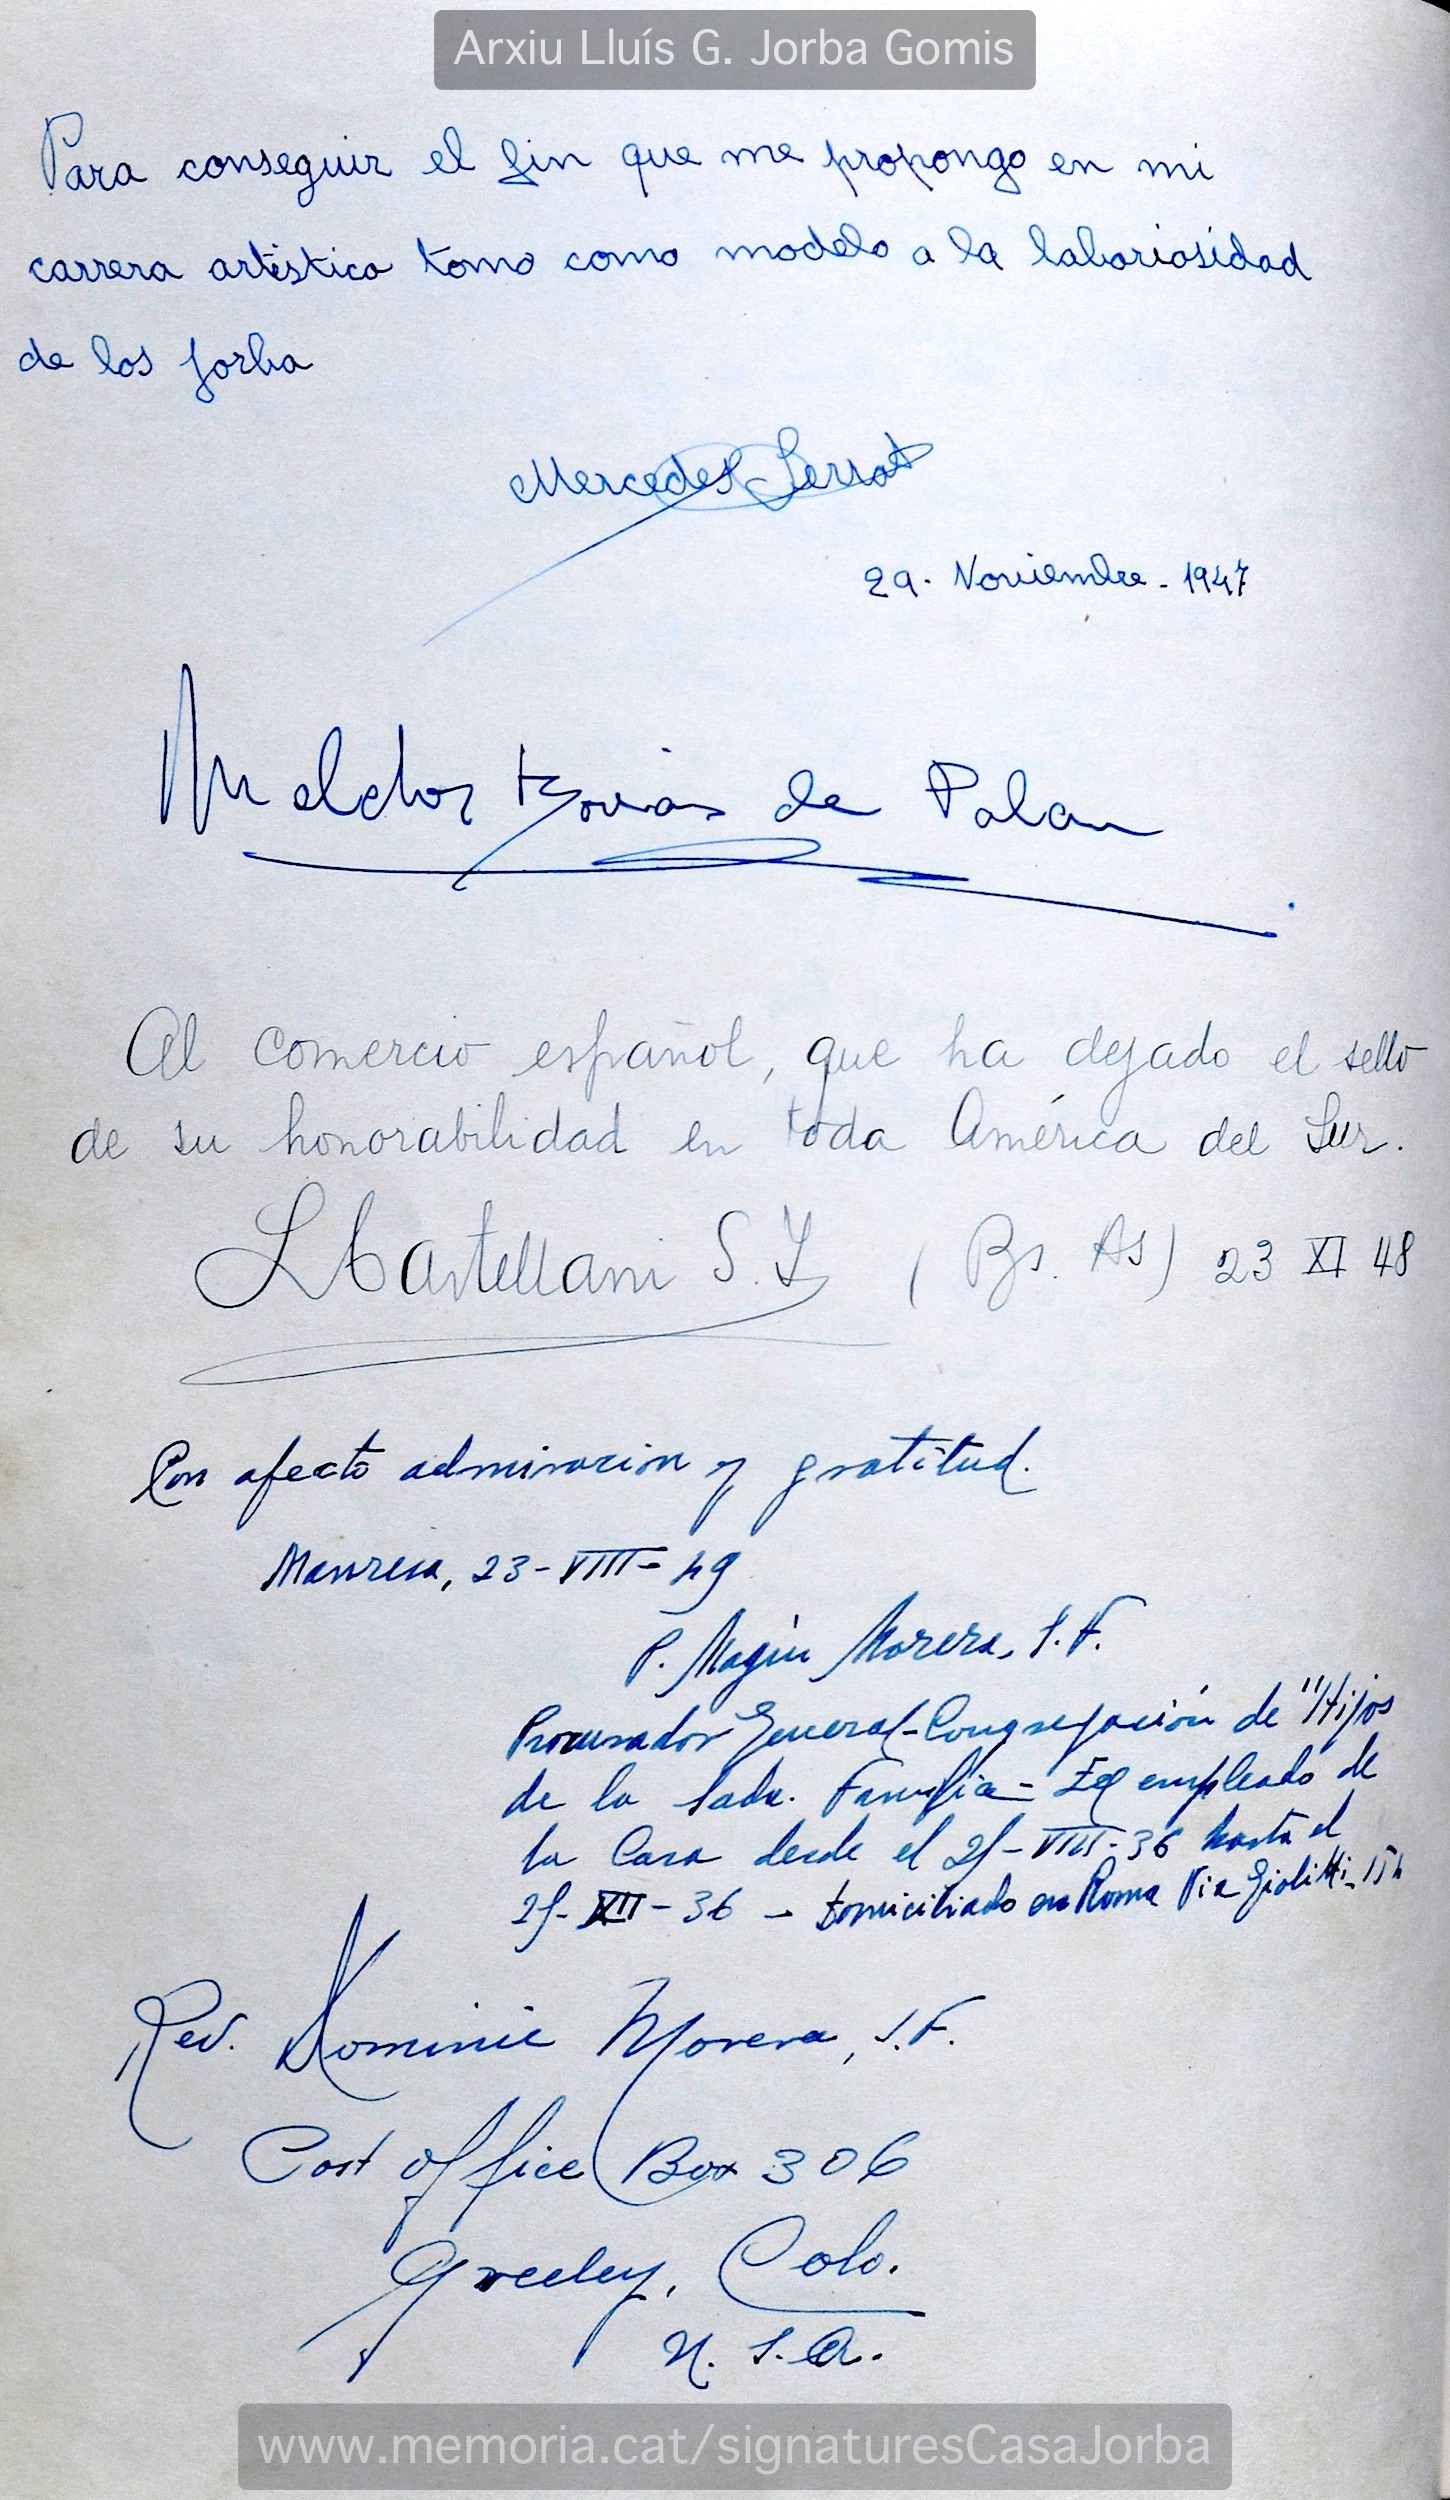 Arxiu Lluís G. Jorba Gomis
Para conseguir el fin que me propongo en mi
carrera artística tomo como modelo a la laboriosidad
de los Jorba
Mercedes Serrat
29. Noviembre - 1947
Melchor de Palau
Al comercio español, que ha dejado el sello
de su honorabilidad en toda América del Sur.
L Castellani S.J. (Bs. As) 23 XI 48
Con afecto admiracion y gratitud.
Manresa, 23-VIII-49
P. Magín Morera, S.F.
Procurador General-Congregación de "Hijos
de la Sada. Familia = Ex empleado de
la Casa desde el VIII-36 hasta el
XII-36 - domiciliado en Roma Via Giolitti
Rev. Dominic Morera, S.F.
Post office Box 306
Greeley, Colo.
U.S.A.
www.memoria.cat/signaturesCasaJorba